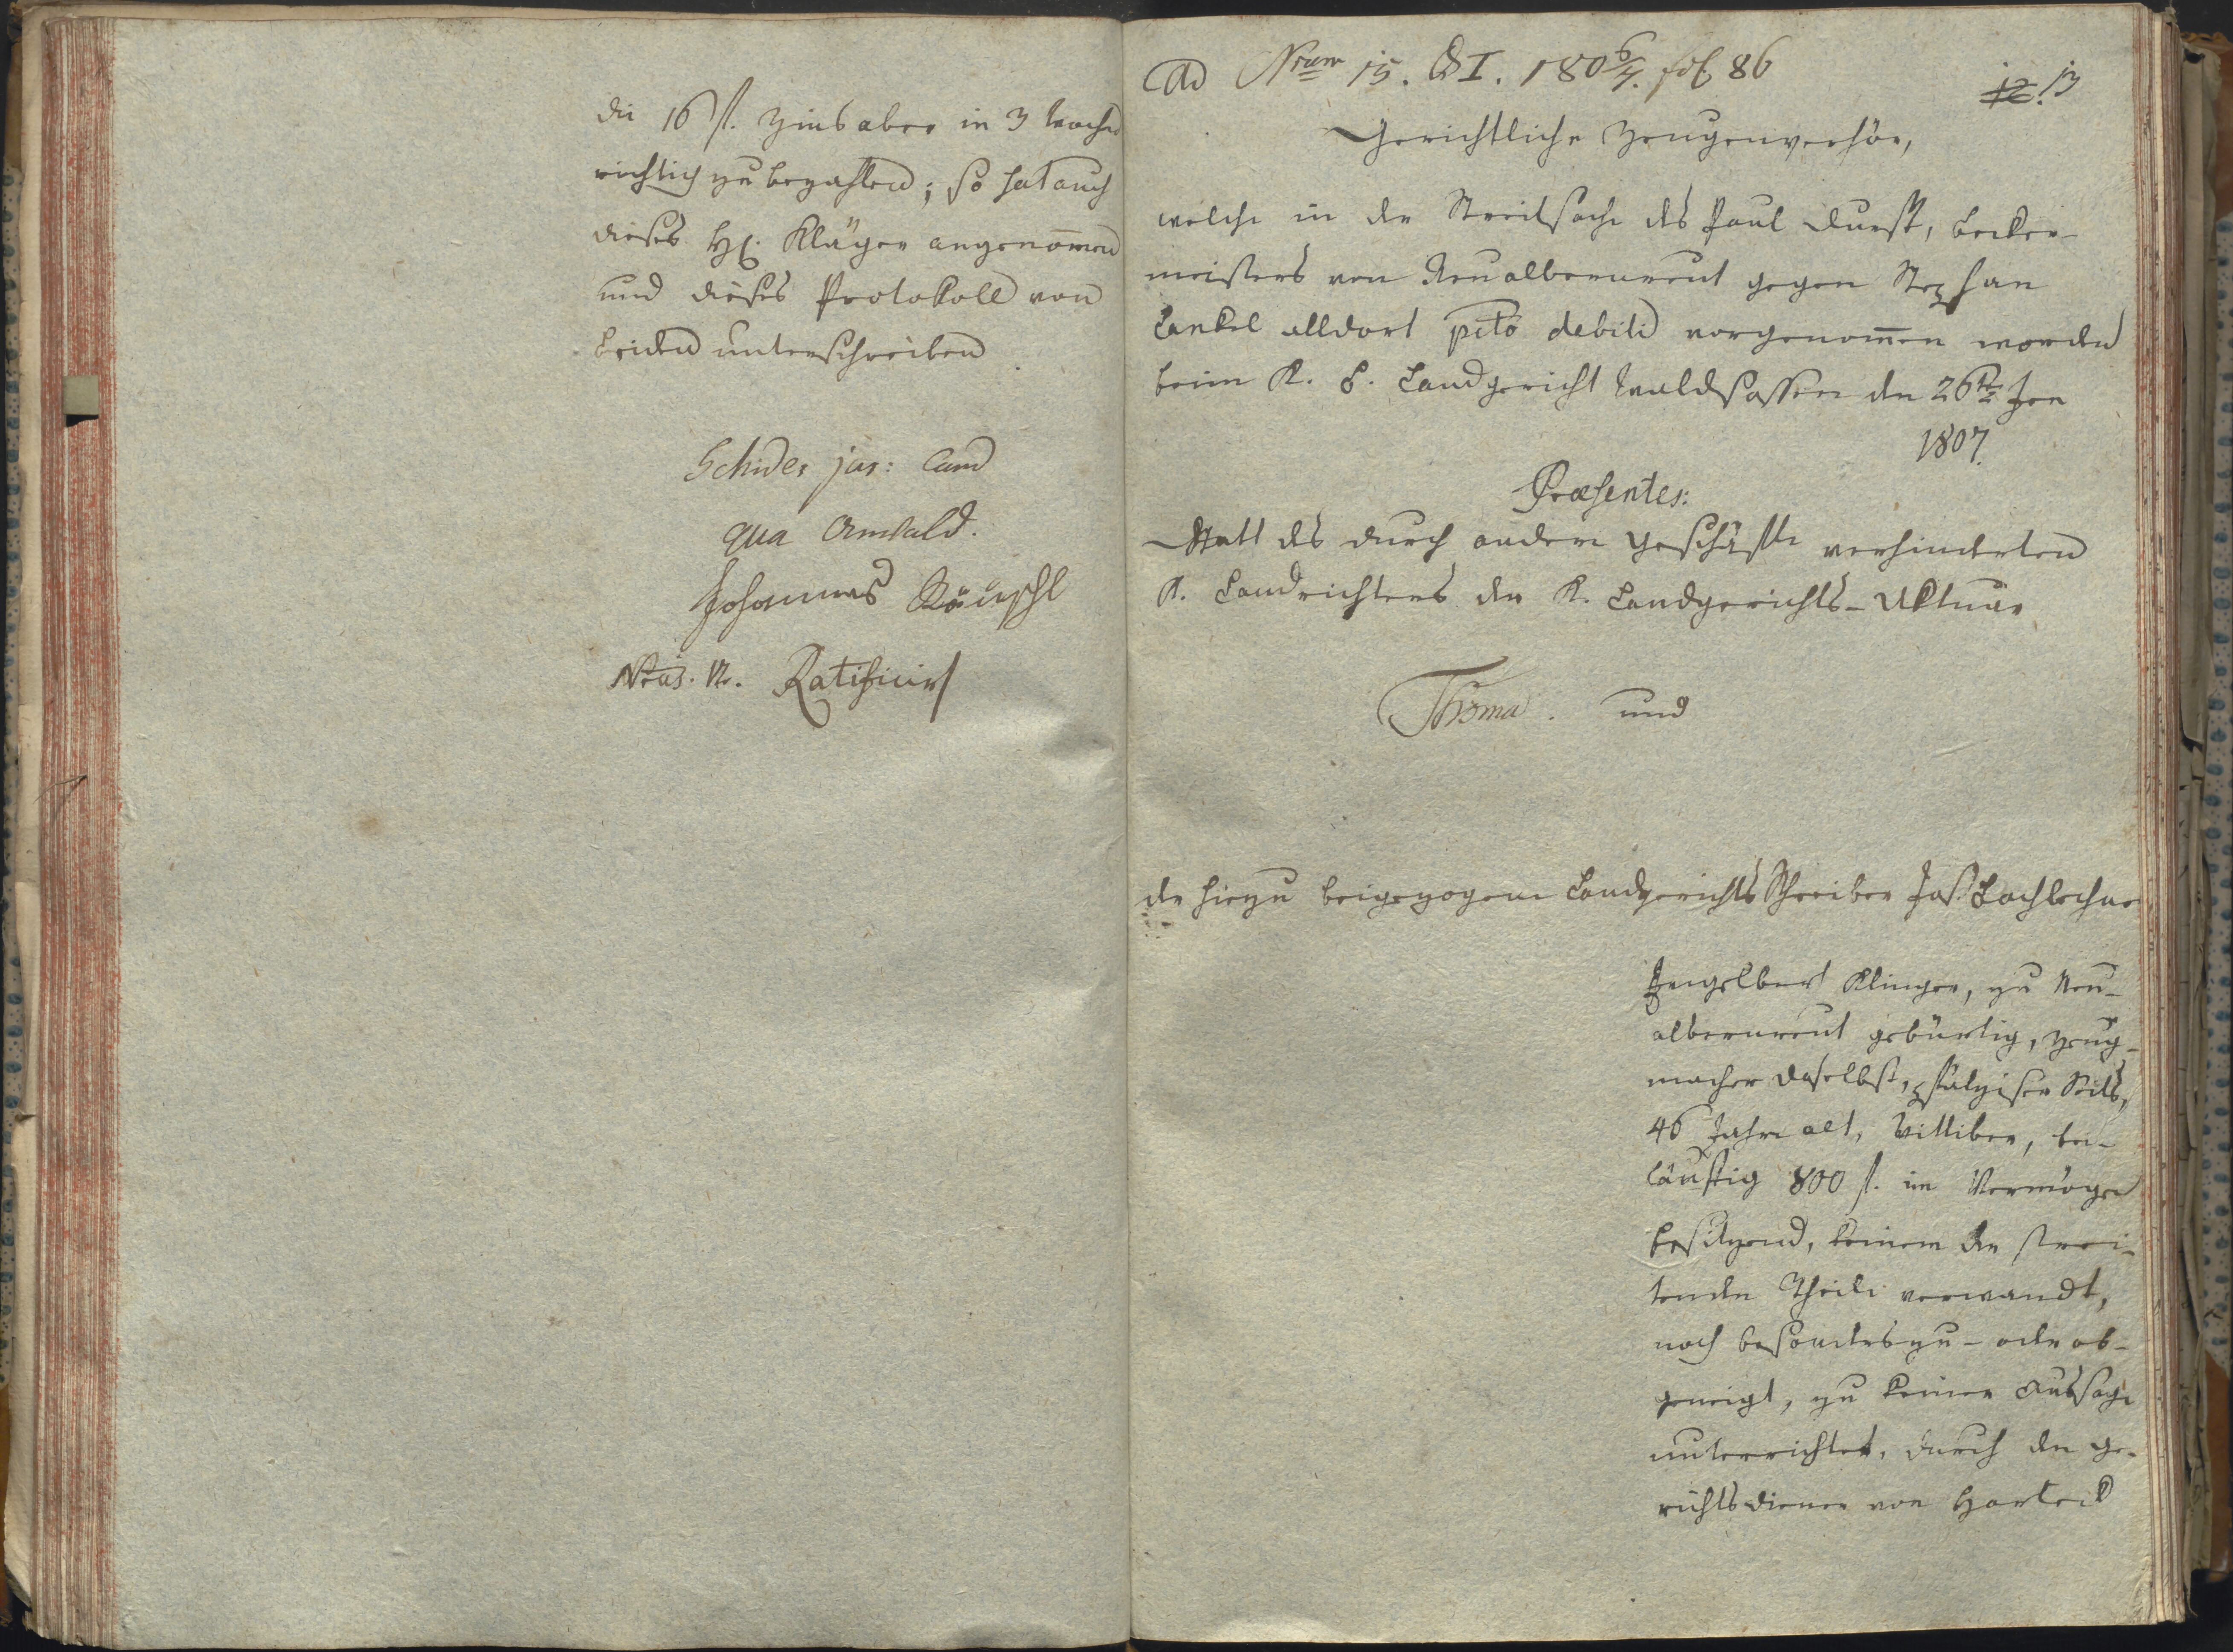 die 16 fl. Zins aber in 3 Wochen
richtig zu bezahlen; so hat auch
dieses H. Kläger angenom̄en
und dieses Protokoll von
beiden unterschrieben
Schider jur: Cand
qua Anwald.
Johannes
Ratificirt
Ad Nrum 15. QI. 180 6/7. fol 86
12. 13
Gerichtliche Zeugenverhör,
welche in der Streitsache des Paul Durst, Becker-
meisters von Neualbenreut gegen Stephan
Lankel alldort pcto debiti vorgenom̄en worden
beim K. B. Landgericht Waldsassen den 26ten Jen
1807.
Præsentes:
Statt des durch andere Geschäfte verhinderten
K. Landrichters der K. Landgerichts-Aktuar
Thoma. und
der hiezu beigezogene Landgerichts Schreiber Jos Lachlechner
Engelbert Klinger, zu Neu-
albenreut gebürtig, Zeug-
macher daselbst, pfalzischer Seits,
46 Jahre alt, Wittiber, bei-
läuftig 800 fl. im Vermögen
besitzend, keinem der strei-
tenden Theile verwandt,
noch besonders zu- oder ab-
geneigt, zu keiner Aussage
unterrichtet, durch den Ge-
richtsdiener von Hardeck